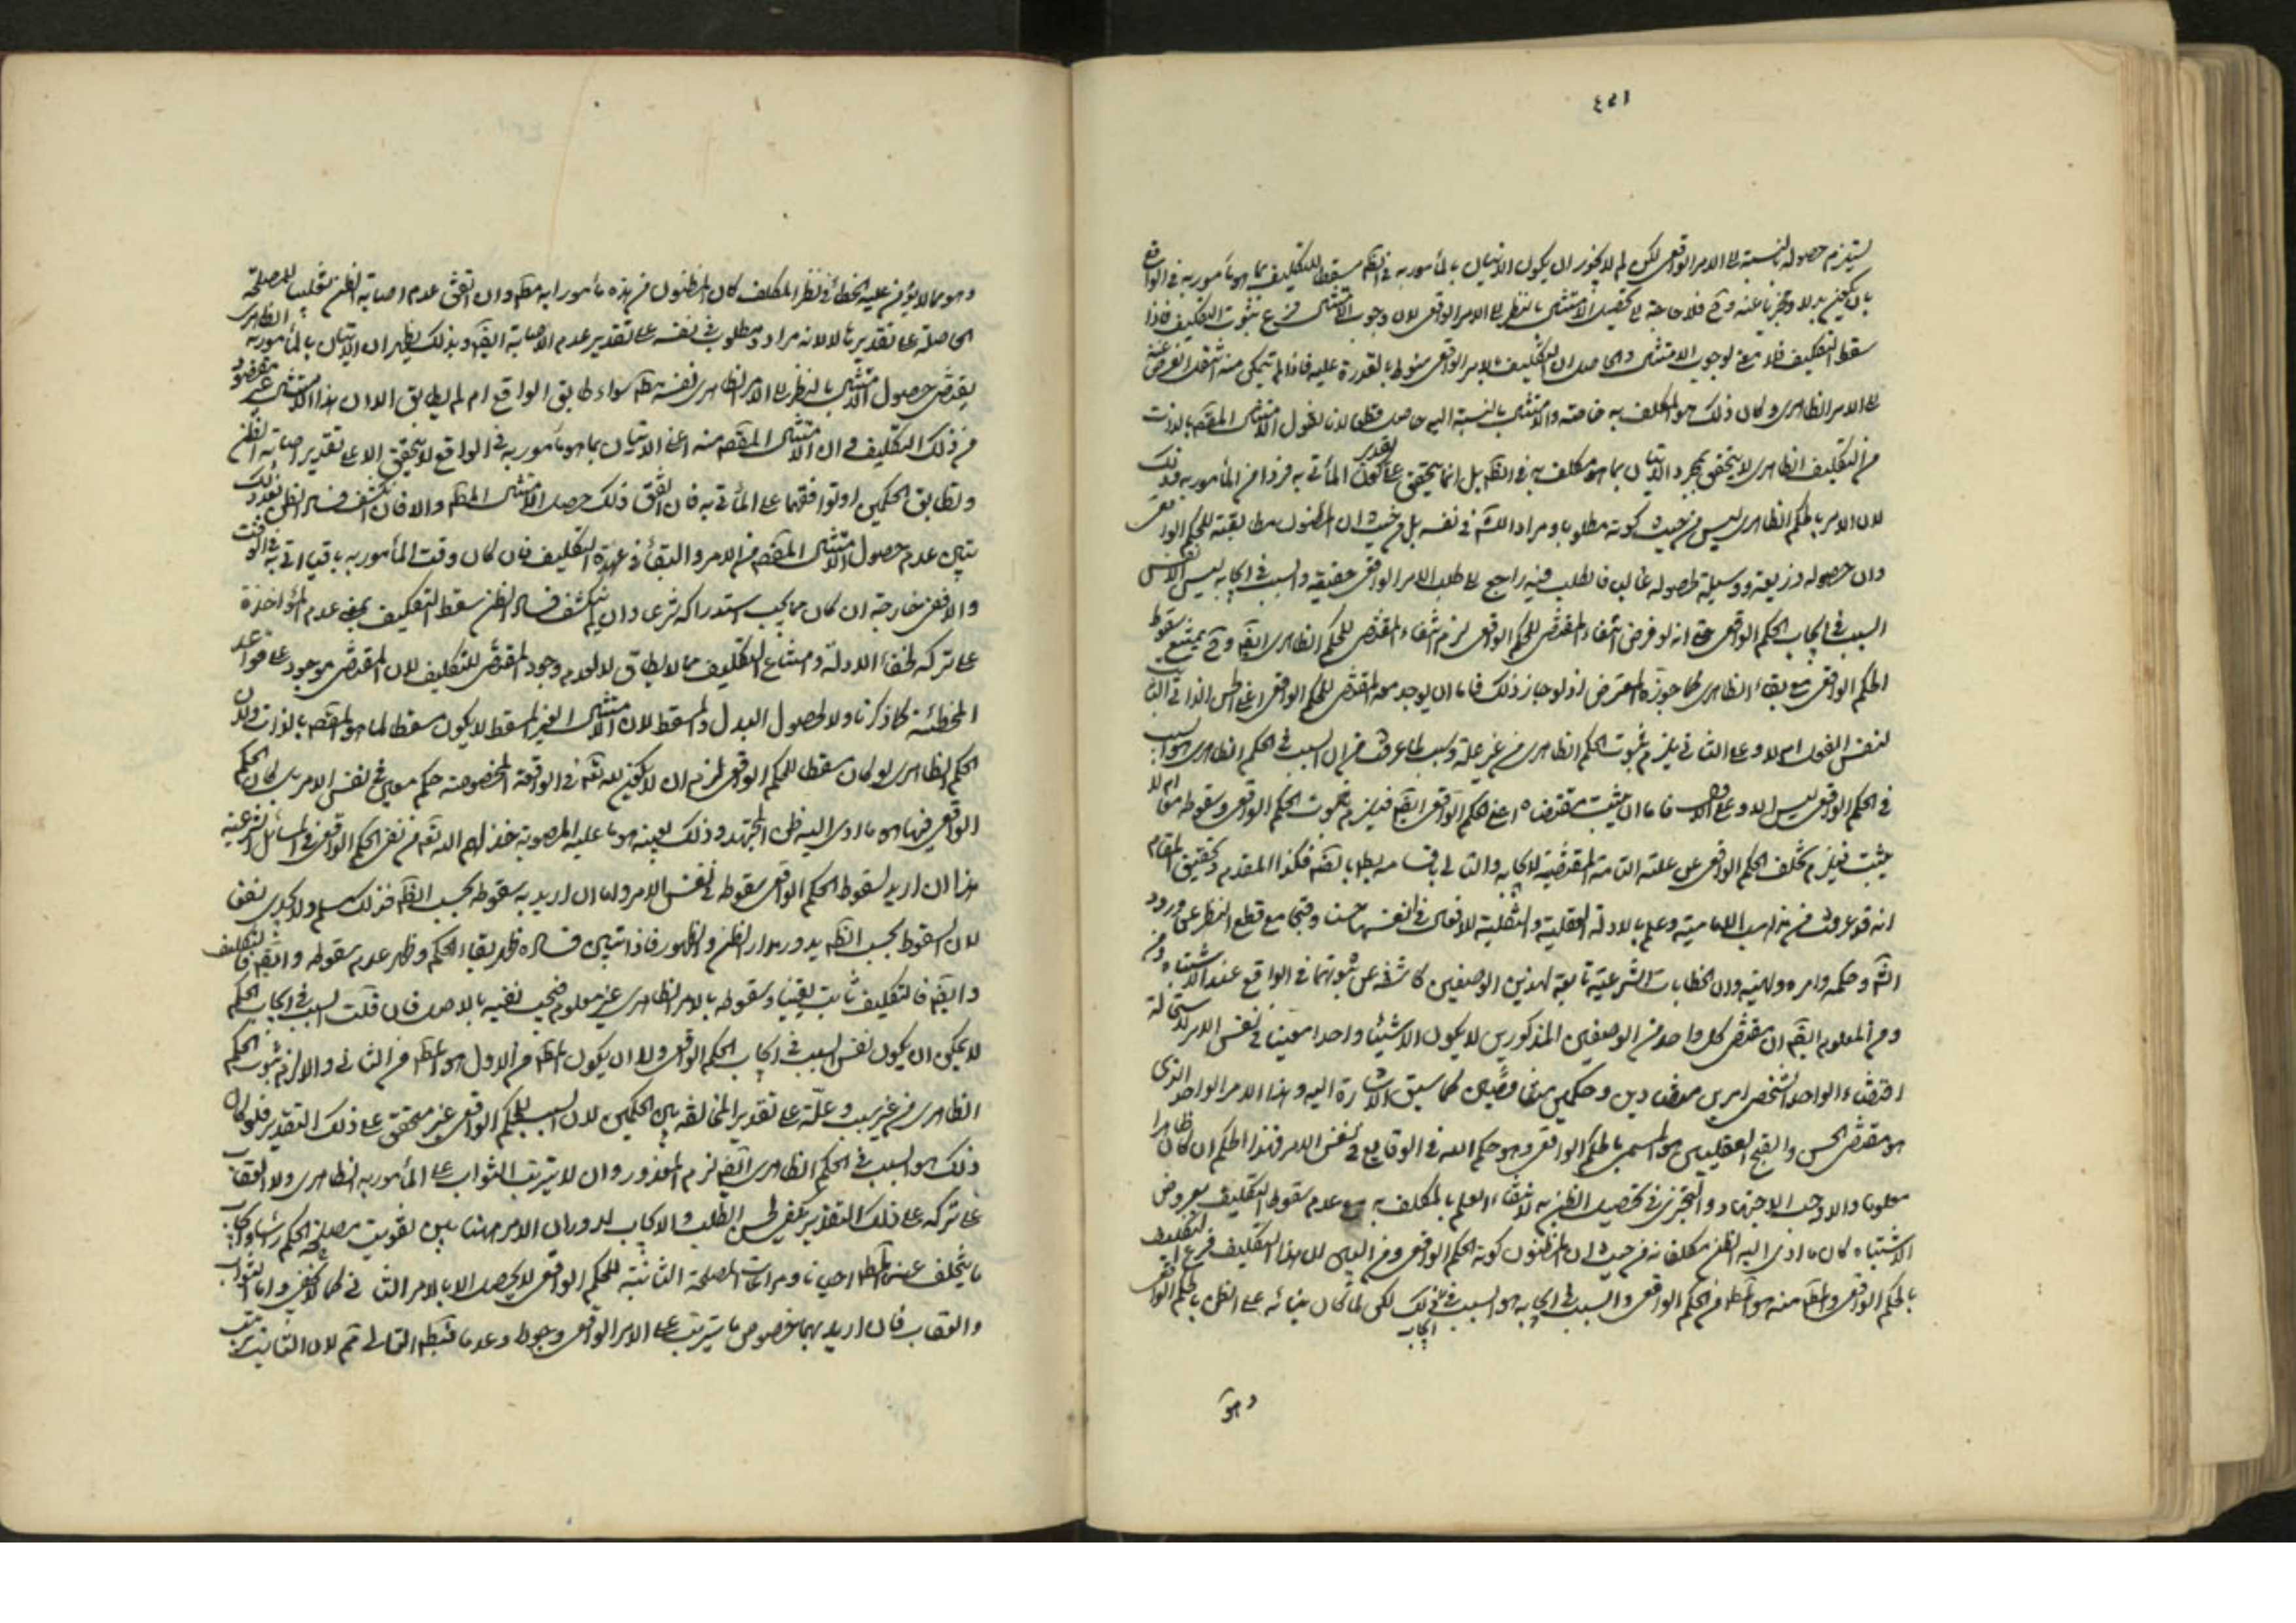 ٤٥١
يستلزم حصوله بالنسبة الى الامر الواقعى لكن لم لا يجوز ان يكون الاتيان بالمأمور به فى الظم مسقطا للتكليف بما هو مأمور به فى الواقع
بان يكون بدلا ومجزيا عنه وح فلا حاجة الى تحصيل الامتثال بالنظر الى الامر الواقعى لان وجوب الامتثال فرع ثبوت التكليف فاذا
سقط التكليف فلا معنى لوجوب الامتثال والحاصل ان التكليف بالامر الواقعى مشروط بالقدرة عليه فاذا لم يتمكن منه انتقل الفرض عنه
الى الامر الظاهرى وكان ذلك هو المكلف به خاصة والامتثال بالنسبة اليه حاصل قطعا لانا نقول الامتثال المقصم بالذات
من التكليف الظاهرى لا يتحقق بمجرد الاتيان بما هو مكلف به فى الظم بل انما يتحقق على تقدير كون المأتى به فردا من المأمور به وذلك
لان الامر بالحكم الظاهرى ليس من حيث كونه مطلوبا ومرادا لله فى نفسه بل من حيث ان المظنون مطابقته للحكم الواقعى
وان حصوله ذريعة ووسيلة لحصوله غالبا فالطلب فيه راجع الى طلب الامر الواقعى حقيقة والسبب فى ايجابه ليس الا نفس
السبب فى ايجاب الحكم الواقعى حتى انه لو فرض انتفاء المقتضى للحكم الواقعى لزم انتفاء المقتضى للحكم الظاهرى ايضا وح يمتنع سقوط
الحكم الواقعى مع بقاء الظاهرى كما جوزه المعترض اذ لو جاز ذلك فاما ان يوجد معه المقتضى للحكم الواقعى اعنى الحسن الذاتى الثابت
لنفس الفعل ام لا وعلى الثانى يلزم ثبوت الحكم الظاهرى من غير علة وسبب لما عرفت من ان السبب فى الحكم الظاهرى هو السبب
فى الحكم الواقعى ليس الا وعلى الاول فاما ان يثبت مقتضاه اعنى الحكم الواقعى ايضا فيلزم ثبوت الحكم الواقعى وسقوطه معا ام لا
يثبت فيلزم تخلف الحكم الواقعى عن علته التامة المقتضية لايجابه والتالى باقسامه بطل بالضم فكذا المقدم وتحقيق المقام
انه قد عرفت من مذاهب الامامية وعلم بالادلة العقلية والنقلية للافعال فى انفسها حسنا وقبحا مع قطع النظر عن ورود
الشرع وحكمه وامره ونهيه وان الخطابات الشرعية تابعة لهذين الوصفين كاشفة عن ثبوتهما فى الواقع عند الاشتباه
ومن المعلوم ايضا ان مقتضى كل واحد من الوصفين المذكورين لا يكون الا شيئا واحدا معينا فى نفس الامر لاستحالة
اقتضاء الواحد الشخصى امرين متضادين وحكمين متناقضين كما سبق الاشارة اليه وهذا الامر الواحد الذى
هو مقتضى الحسن والقبح العقليين هو المسمى بالحكم الواقعى وهو حكم الله فى الوقايع فى نفس الامر فهذا الحكم ان كان ظاهرا
معلوما والا وجب الاجتهاد والتحرى فى تحصيل الظن به لانتفاء العلم بالمكلف به مع عدم سقوط التكليف بعروض
الاشتباه كان ما ادى اليه الظن مكلفا به من حيث ان المظنون كونه الحكم الواقعى ومن البين ان هذا التكليف فرع التكليف
بالحكم الواقعى والمط منه هو المط من الحكم الواقعى والسبب فى ايجابه هو السبب فى ايجاب ذلك لكن لما كان بنائه على الظن بالحكم الواقعى
وهو
وهو مما لا يؤمن عليه الخطأ فى نظر المكلف كان المظنون من هذه مأمورا به مطم وان اتفق عدم اصابة الظن تغليبا للمصلحة
الحاصلة على تقديرها لا لانه مراد ومطلوب فى نفسه على تقدير عدم الاصابة ايضا وبذلك يظهر ان الاتيان بالمأمور به الظاهرى
يقتضى حصول الامتثال بالنظر الى الامر الظاهرى نفسه مطم سواء طابق الواقع ام لم يطابق الا ان هذا الامتثال غير مقصود
من ذلك التكليف وان الامتثال المقصم منه اعنى الاتيان بما هو مأمور به فى الواقع لا يتحقق الا على تقدير اصابة الظن
وتطابق الحكمين او توافقهما على المأتى به فان اتفق ذلك حصل الامتثال المط والا فان انكشف فساد الظن بعد ذلك
تبين عدم حصول الامتثال المقصم من الامر والبقاء فى عهدة التكليف فان كان وقت المأمور به باقيا اتى به فى الوقت
والا ففى خارجه ان كان مما يجب استدراكه شرعا وان لم ينكشف فساد الظن سقط التكليف بمعنى عدم المؤاخذة
على تركه لخفاء الادلة وامتناع التكليف مما لا يطاق لا لعدم وجود المقتضى للتكليف لان المقتضى موجود على قواعد
المخطئة كما ذكرنا ولا لحصول البدل والمسقط لان الامتثال الغير المسقط لا يكون مسقطا لما هو المقصم بالذات ولان
الحكم الظاهرى لو كان مسقطا للحكم الواقعى لزم ان لا يكون لله تعم فى الواقعة المخصوصة حكم معين فى نفس الامر بل كان الحكم
الواقعى فيها هو ما ادى اليه ظن المجتهد وذلك بعينه هو ما عليه المصوبة خذلهم الله تعم من نفى الحكم الواقعى فى المسائل الشرعية
هذا ان اريد بسقوط الحكم الواقعى سقوطه فى نفس الامر واما ان اريد به سقوطه بحسب الظم فذلك مسلم ولا يجدى نفعا
لان السقوط بحسب الظم يدور مدار الظن والظهور فاذا تبين فساده ظهر بقاء الحكم وظهر عدم سقوطه
وايضا فالتكليف ثابت يقينا وسقوطه بالامر الظاهرى غير معلوم فيجب نفيه بالاصل فان قلت السبب فى ايجاب الحكم
لا يمكن ان يكون نفس السبب فى ايجاب الحكم الواقعى ولا ان يكون المط من الاول هو المط من الثانى والا لزم ثبوت الحكم
الظاهرى من غير سبب وعلة على تقدير المخالفة بين الحكمين لان السبب للحكم الواقعى غير متحقق على ذلك التقدير فلو كان
ذلك هو السبب فى الحكم الظاهرى ايضا لزم المحذور وان لا يترتب الثواب على المأمور به الظاهرى ولا العقاب
على تركه على ذلك التقدير يكفى لحسن الطلب والايجاب لدوران الامر هنا بين تفويت مصلحة الحكم
ما يتخلف عنه المط احيانا ومراعات المصلحة الثابتة للحكم الواقعى لا يحصل الا بالامر الثانى كما لا يخفى واما الثواب
والعقاب فان اريد بهما خصوص ما يترتب على الامر الواقعى وجودا وعدما فبطلم التالى تم لان الثابت